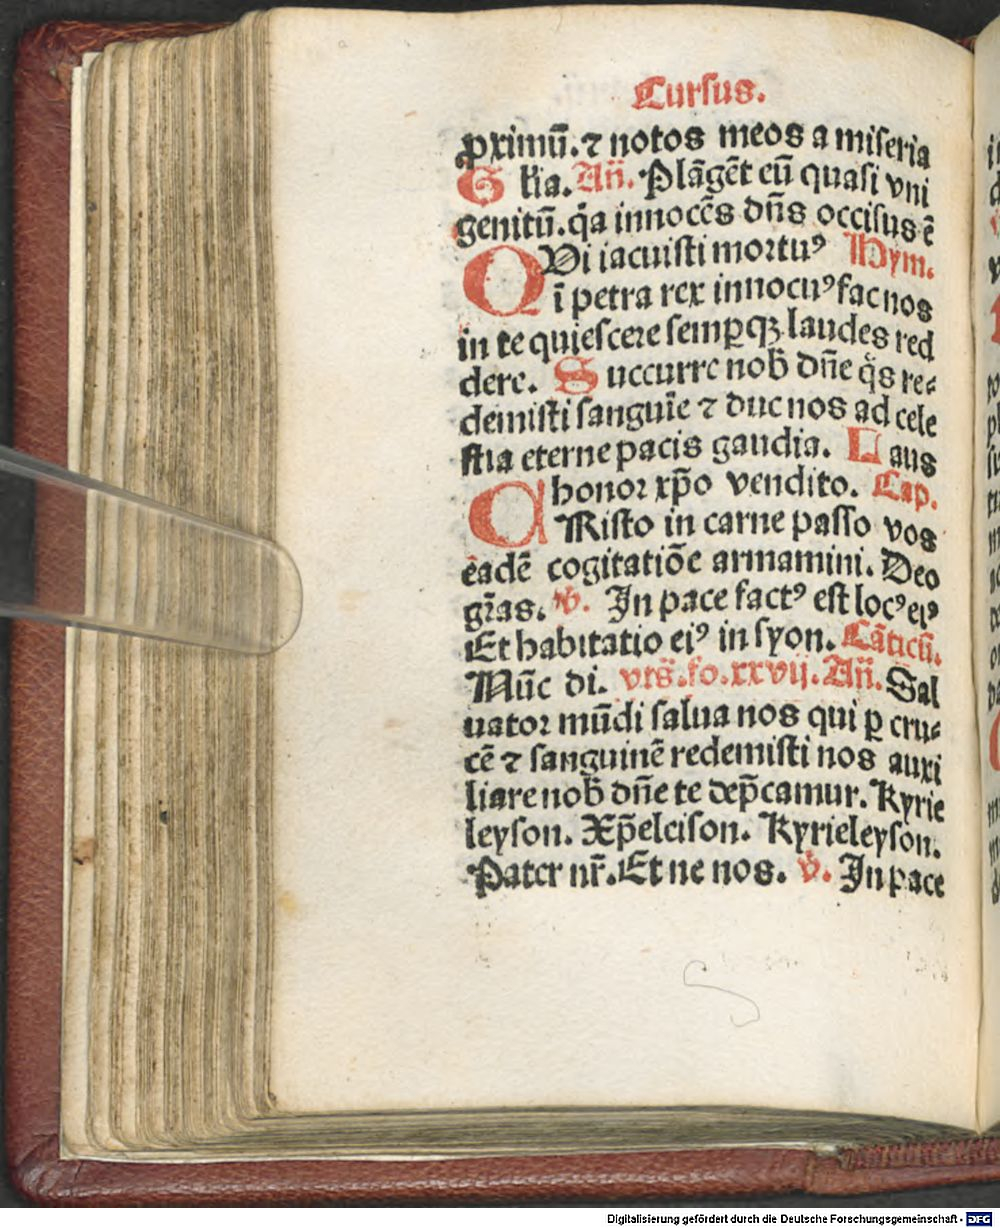 Cursus.
ꝓximū. ⁊ notos meos a miseria
Glīa. Añ. Plāgēt eū quasi vni
genitū. q̄a innocēs dn̄s occisus ē
QVi iacuisti mortuꝰ Hym.
ī petra rex innocuꝰ fac nos
in te quiescere semꝑqꝫ laudes red
dere. Succurre nob̄ dn̄e q̄s re⸗
demisti sanguīe ⁊ duc nos ad cele
stia eterne pacis gaudia. Laus
honor xp̄o vendito. Cap.
CHRisto in carne passo vos
eadē cogitatiōe armamini. Deo
gr̄as. ℣. In pace factꝰ est locꝰ eiꝰ
Et habitatio eiꝰ in syon. Cāticū.
Nūc di. vts̄. fo. xxvij. Añ. Sal
uator mūdi salua nos qui ꝑ cru⸗
cē ⁊ sanguinē redemisti nos auxi
liare nob̄ dn̄e te dep̄camur. Kyrie
leyson. Xp̄eleison. Kyrieleyson.
Pater nr̄. Et ne nos. ℣. In pace
Digitalisierung gefördert durch die Deutsche Forschungsgemeinschaft - DFG